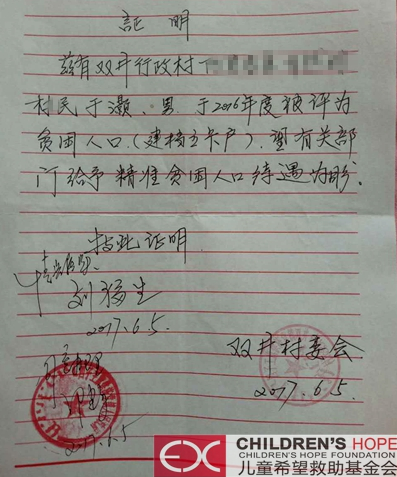 証明
兹有双井行政村
村民于灏、男、于2016年度被评为
贫困人口.(建档立卡户).望有关部
门给予精准贫困人口待遇为盼.
特此证明.
情况属实.
刘福生
2017.6.5.
双井村委会
2017.6.5.
2017.6.5
CHILDREN'S HOPE
CHILDREN'S HOPE FOUNDATION
儿童希望救助基金会